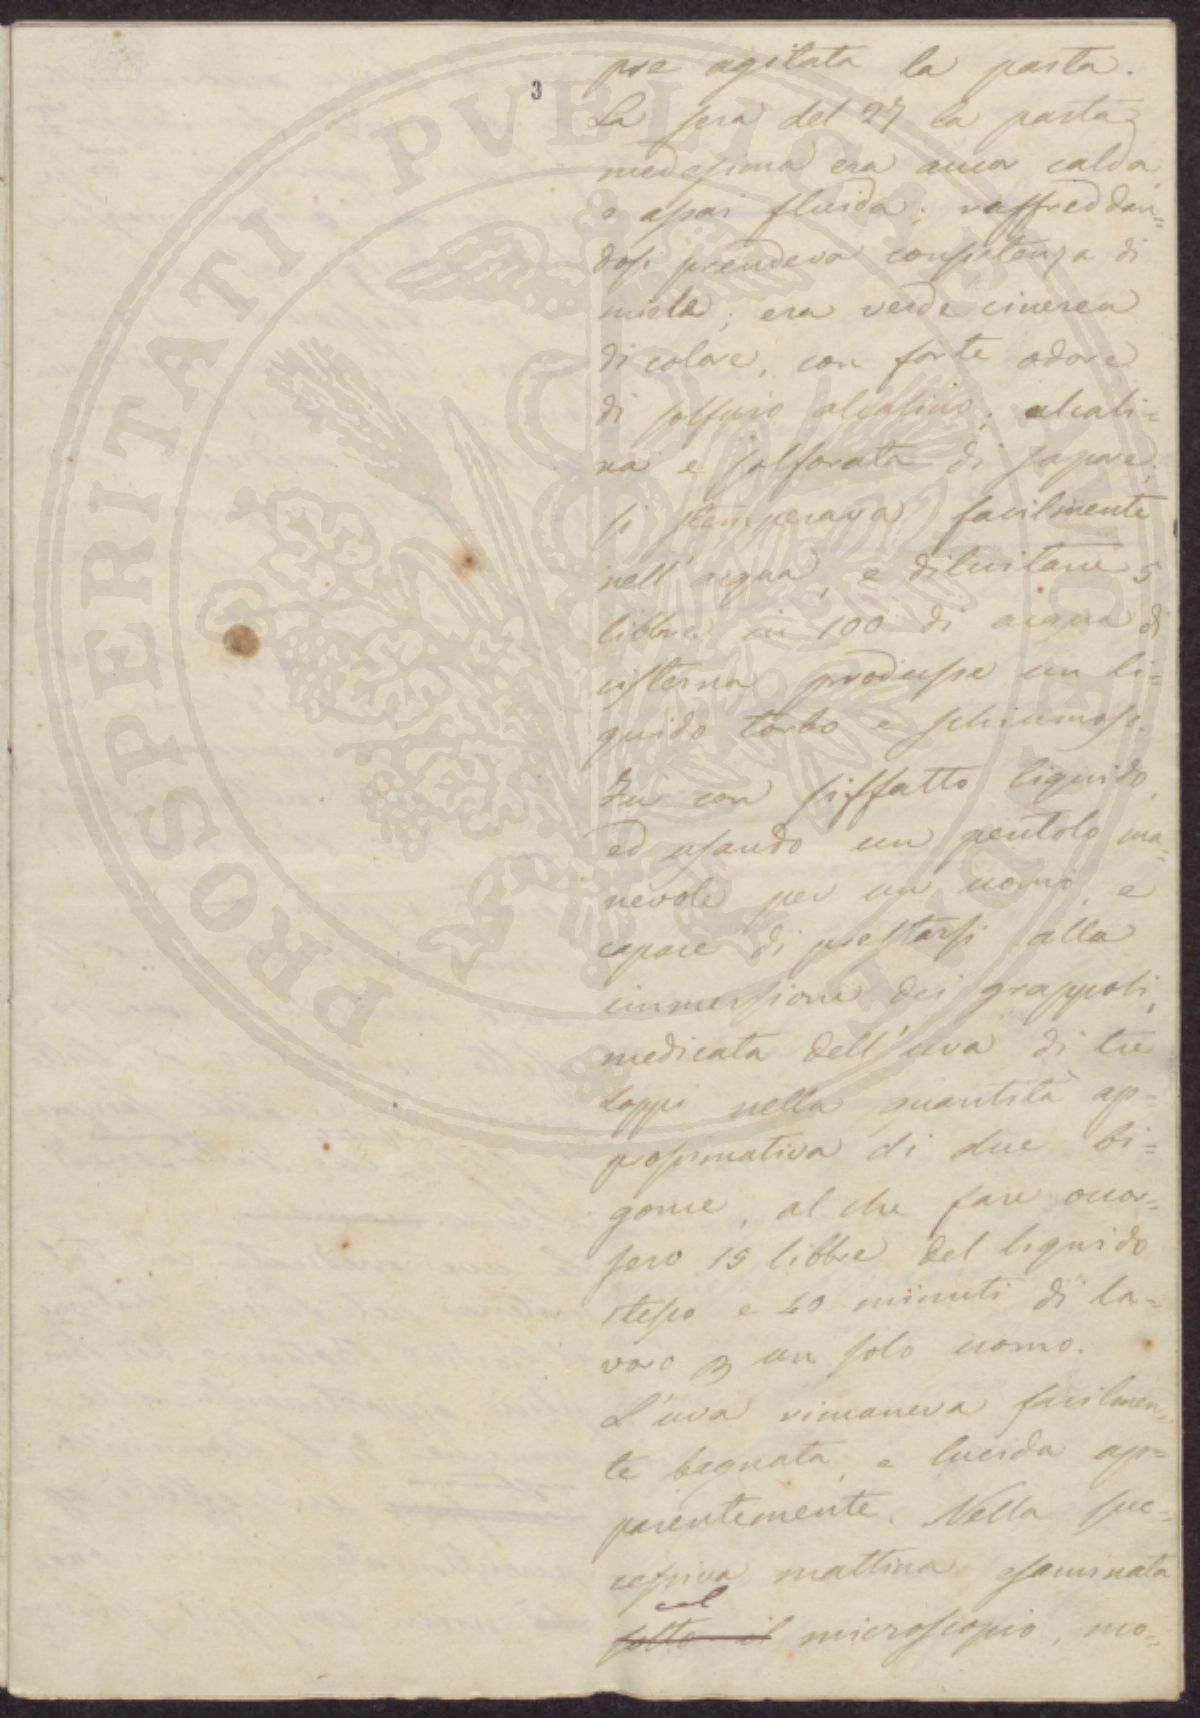 3
pre agitata la pasta.
La sera del 27 la pasta
medesima era ancor calda
e assai fluida; raffreddan=
dosi prendeva consistenza di
miele; era verde cinerea
di colore, con forte odore
di solfuro alcalino; alcali=
na e solforata di sapore;
si stemperava facilmente
nell'acqua, e diluitane 5
libbre in 100 di acqua di
cisterna produsse un li=
quido torbo e schiumoso.
Fu con siffatto liquido,
ed usando un pentolo ma=
nevole per un uomo, e
capace di prestarsi alla
immersione dei grappoli,
medicata dell'uva di tre
Loppi nella quantità ap=
prossimativa di due bi=
gonie, al che fare occor=
sero 15 libbre del liquido
stesso e 40 minuti di la=
voro p un solo uomo.
L'uva rimaneva facilmen=
te bagnata, e lucida ap=
parentemente. Nella suc=
cessiva mattina esaminata
col
sotto il microscopio, mo=
PROSPERITATI PVBLICAE